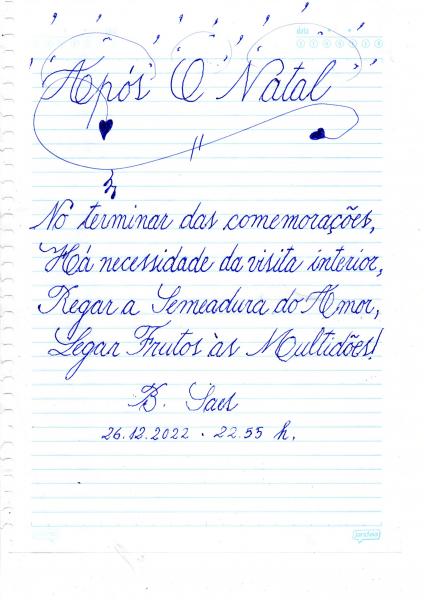 data
Após O Natal
No terminar das comemorações,
Há necessidade da visita interior,
Regar a Semeadura do Amor,
Legar Frutos às Multidões!
B. Saes
26.12.2022 . 22.55 h.
jandaia